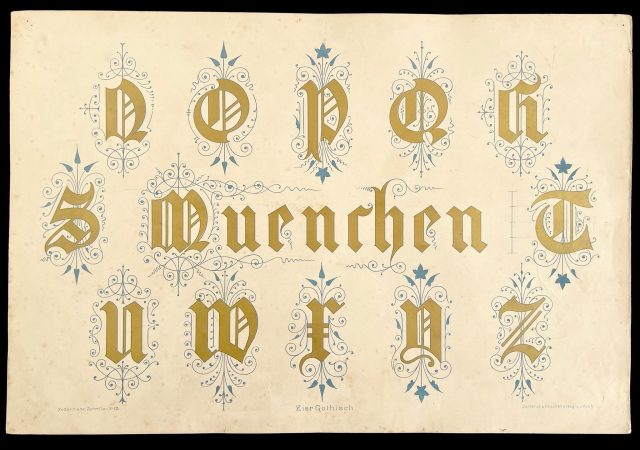 N O P Q R
S Muenchen T
U W X Y Z
Zier Gothisch